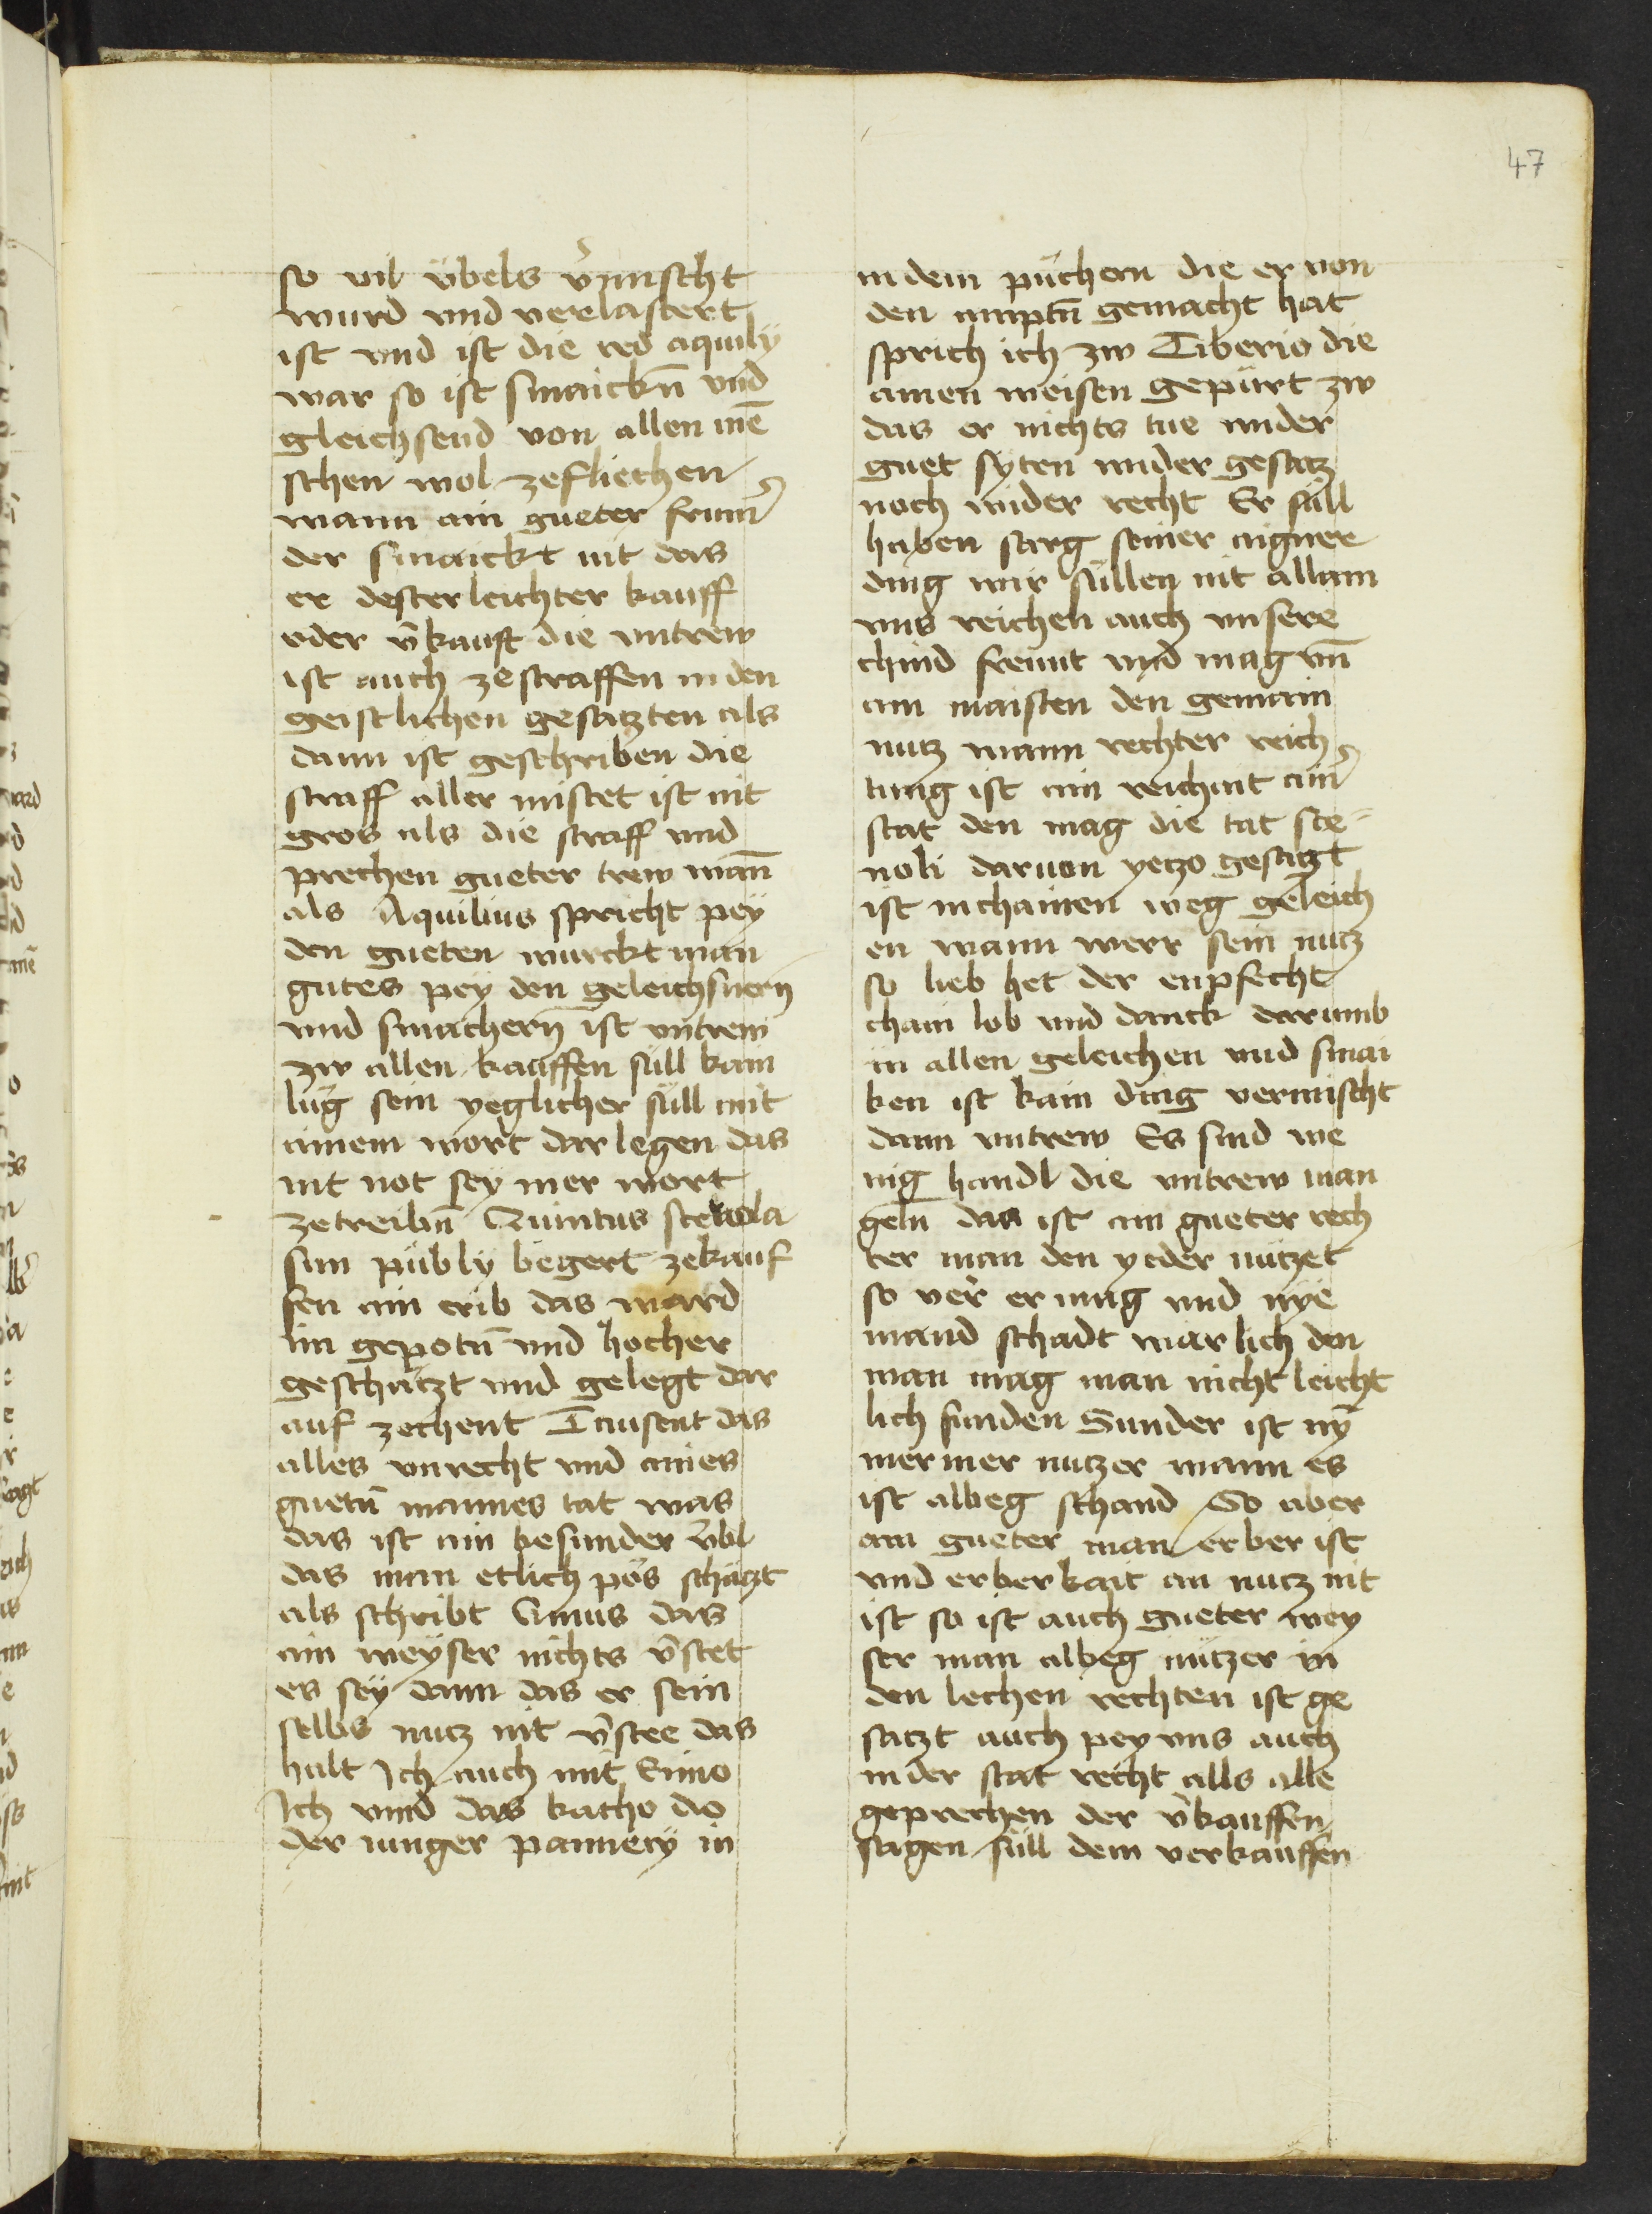 47
so vil übels v̄mischt
wurd vnd verlastert
ist vnd ist die red aquily
war so ist smaickn̄ vnd
gleichsend von allen mē
schen wol zefliechen
wann ain gueter frum̄
der smaickt nit das
er dester leichter kauff
oder v̄kauft die vntrew
ist auch zestraffen in den
geistlichen gesatzten als
dann ist geschriben die
straff aller mistet ist nit
gros als die straff vnd
prechen gueter trew man̄
als Aquilius spricht pey
den gueten wurckt man
gutes pey den geleichsnern̄
vnd smachern̄ ist vntrew
zw allen kauffen süll kain
lüg sein yeglicher süll mit
ainem wort dar legen das
nit not sey mer wort
zetreibn̄ Quintus sceuola
sun pübly begert zekauf
fen ain erib das ward
im gepotn̄ vnd hocher
geschätzt vnd gelegt dar
auf zechent Tausent das
alles vnrecht vnd aines
guetn̄ mannes tat was
das ist ain besunder v̈bl
das man etlich pös schätzt
als schribt Enius das
ain weyser nichts v̄stet
es sey dann das er sein
selbs nutz nit v̄stee das
halt Ich auch mit Enio
Ich vind das katho do
der iunger pannecy in
in dem püchern die er von
den amptn̄ gemacht hat
sprich ich zw Tiberio die
ainen weisen gepürt zw
das er nichts tue wider
guet syten wider gesatz
noch wider recht Er süll
haben sarg seiner aigner
ding wir süllen nit allain
vns reichen auch vnsere
chind freunt vnd mag vn̄
am maisten den gemain
nutz wann rechter reich
tung ist ain reichait ain̄
stat den mag die tat sce
noli daruon yetzo gesagt
ist in chainen weg geleich
en wann werr sein nutz
so lieb het der enpfecht
chain lob vnd danck darumb
in allen geleichen vnd smai
ken ist kain ding vermischt
dann vntrew Es sind we
nig handl die vntrew man
geln das ist ain gueter rech
ter man den yeder nützet
so ver er mag vnd nye
mand schadt warlich den
man mag man nicht leicht
lich finden Sunder ist ny
mer mer nutzer wann es
ist albeg schand So aber
ain gueter man erber ist
vnd erberkait an nutz nit
ist so ist auch gueter wey
ser man albeg nützer in
den lechen rechten ist ge
satzt auch pey vns auch
in der stat recht alls alle
geprechen der v̄kauffen
sagen süll dem verkauffen